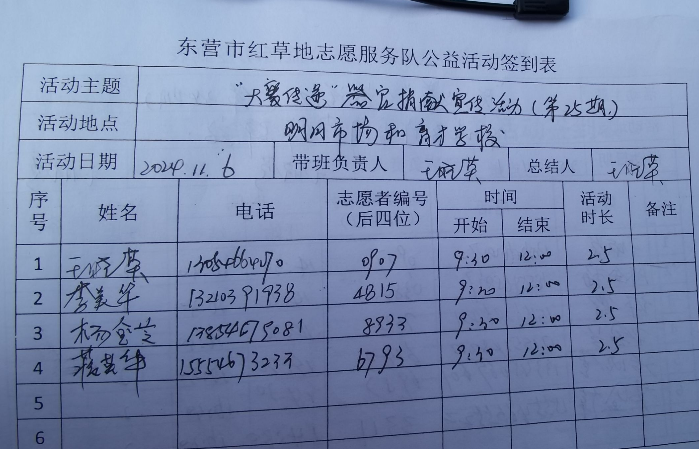 东营市红草地志愿服务队公益活动签到表
活动主题 "大爱传递"器官捐献宣传活动(第25期)
活动地点 明月市场和育才学校
活动日期 2024.11.6 带班负责人 总结人
序号 姓名 电话 志愿者编号(后四位) 时间 开始 结束 活动时长 备注
1 0907 9:30 12:00 2.5
2 李美华 13210391938 4815 9:30 12:00 2.5
3 杨金芝 13854679081 8933 9:30 12:00 2.5
4 15554673233 6793 9:30 12:00 2.5
5
6